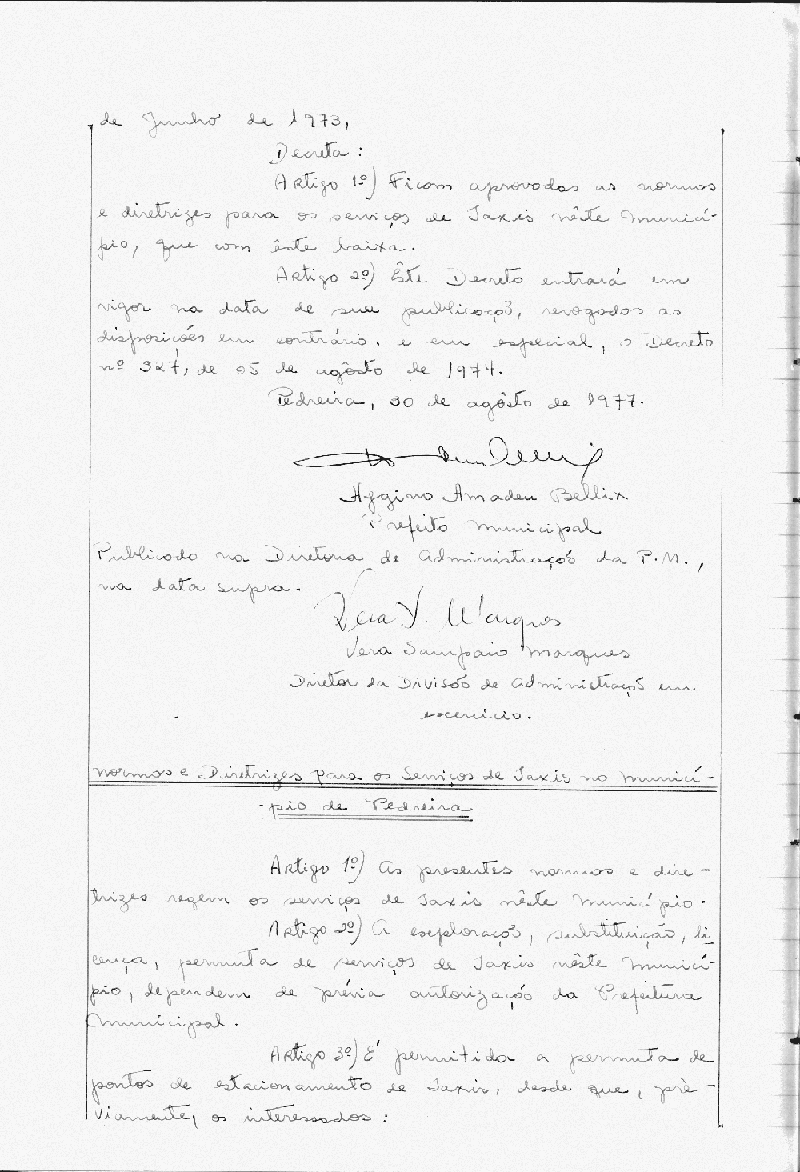 de Junho de 1973,
Decreta:
Artigo 1º) Ficam aprovadas as normas
e diretrizes para os serviços de Taxis nêste Municí-
pio, que com êste baixa.
Artigo 2º) Êste Decreto entrará em
vigor na data de sua publicação, revogados as
disposições em contrário, e em especial, o Decreto
nº 327, de 05 de agôsto de 1974.
Pedreira, 30 de agôsto de 1977.
Hygino Amadeu Bellix
Prefeito Municipal
Publicado na Diretoria de Administração da P.M.,
na data supra.
Vera S. Marques
Vera Sampaio Marques
Diretor da Divisão de Administração em
exercício.
Normas e Diretrizes para os Serviços de Taxis no Municí-
-pio de Pedreira
Artigo 1º) As presentes normas e dire-
trizes regem os serviços de Taxis nêste Município.
Artigo 2º) A exploração, substituição, li
cença, permuta de serviços de Taxis nêste Municí-
pio, dependem de prévia autorização da Prefeitura
Municipal.
Artigo 3º) É permitida a permuta de
pontos de estacionamento de Taxis, desde que, prè-
viamente, os interessados: